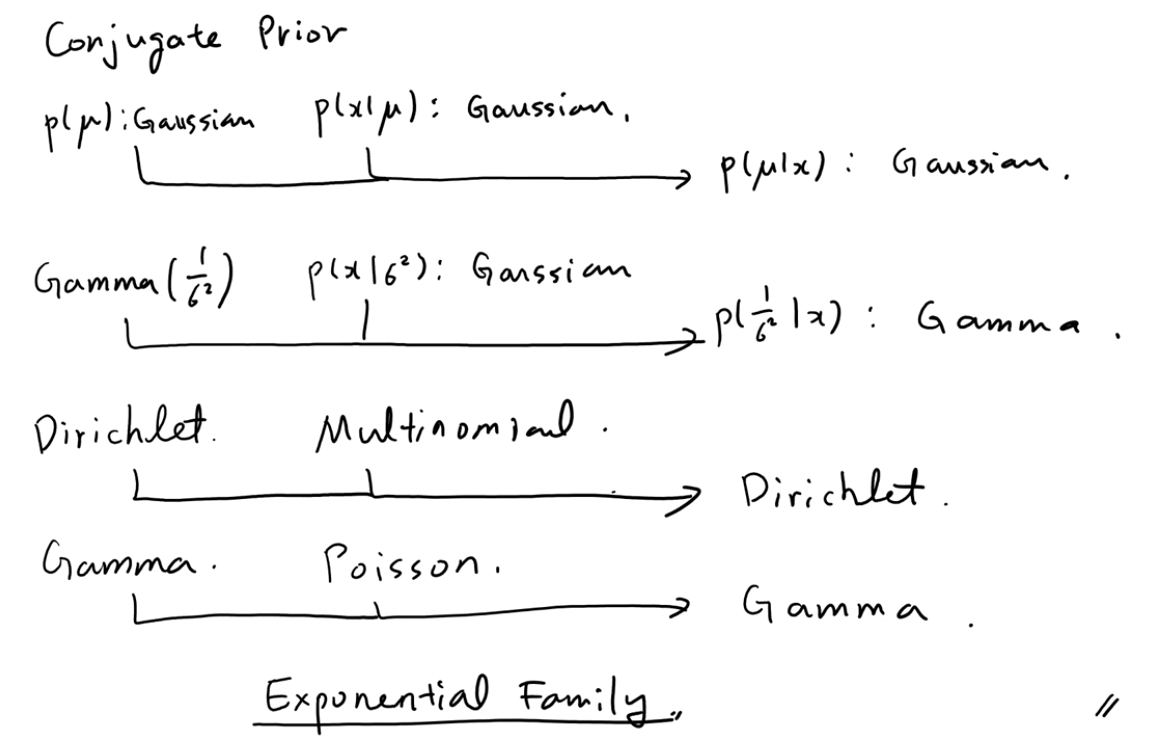 Conjugate Prior
p(μ): Gaussian p(x|μ): Gaussian.
p(μ|x): Gaussian.
Gamma(1/σ²) p(x|σ²): Gaussian
p(1/σ²|x): Gamma.
Dirichlet. Multinomial.
Dirichlet.
Gamma. Poisson.
Gamma.
Exponential Family.,